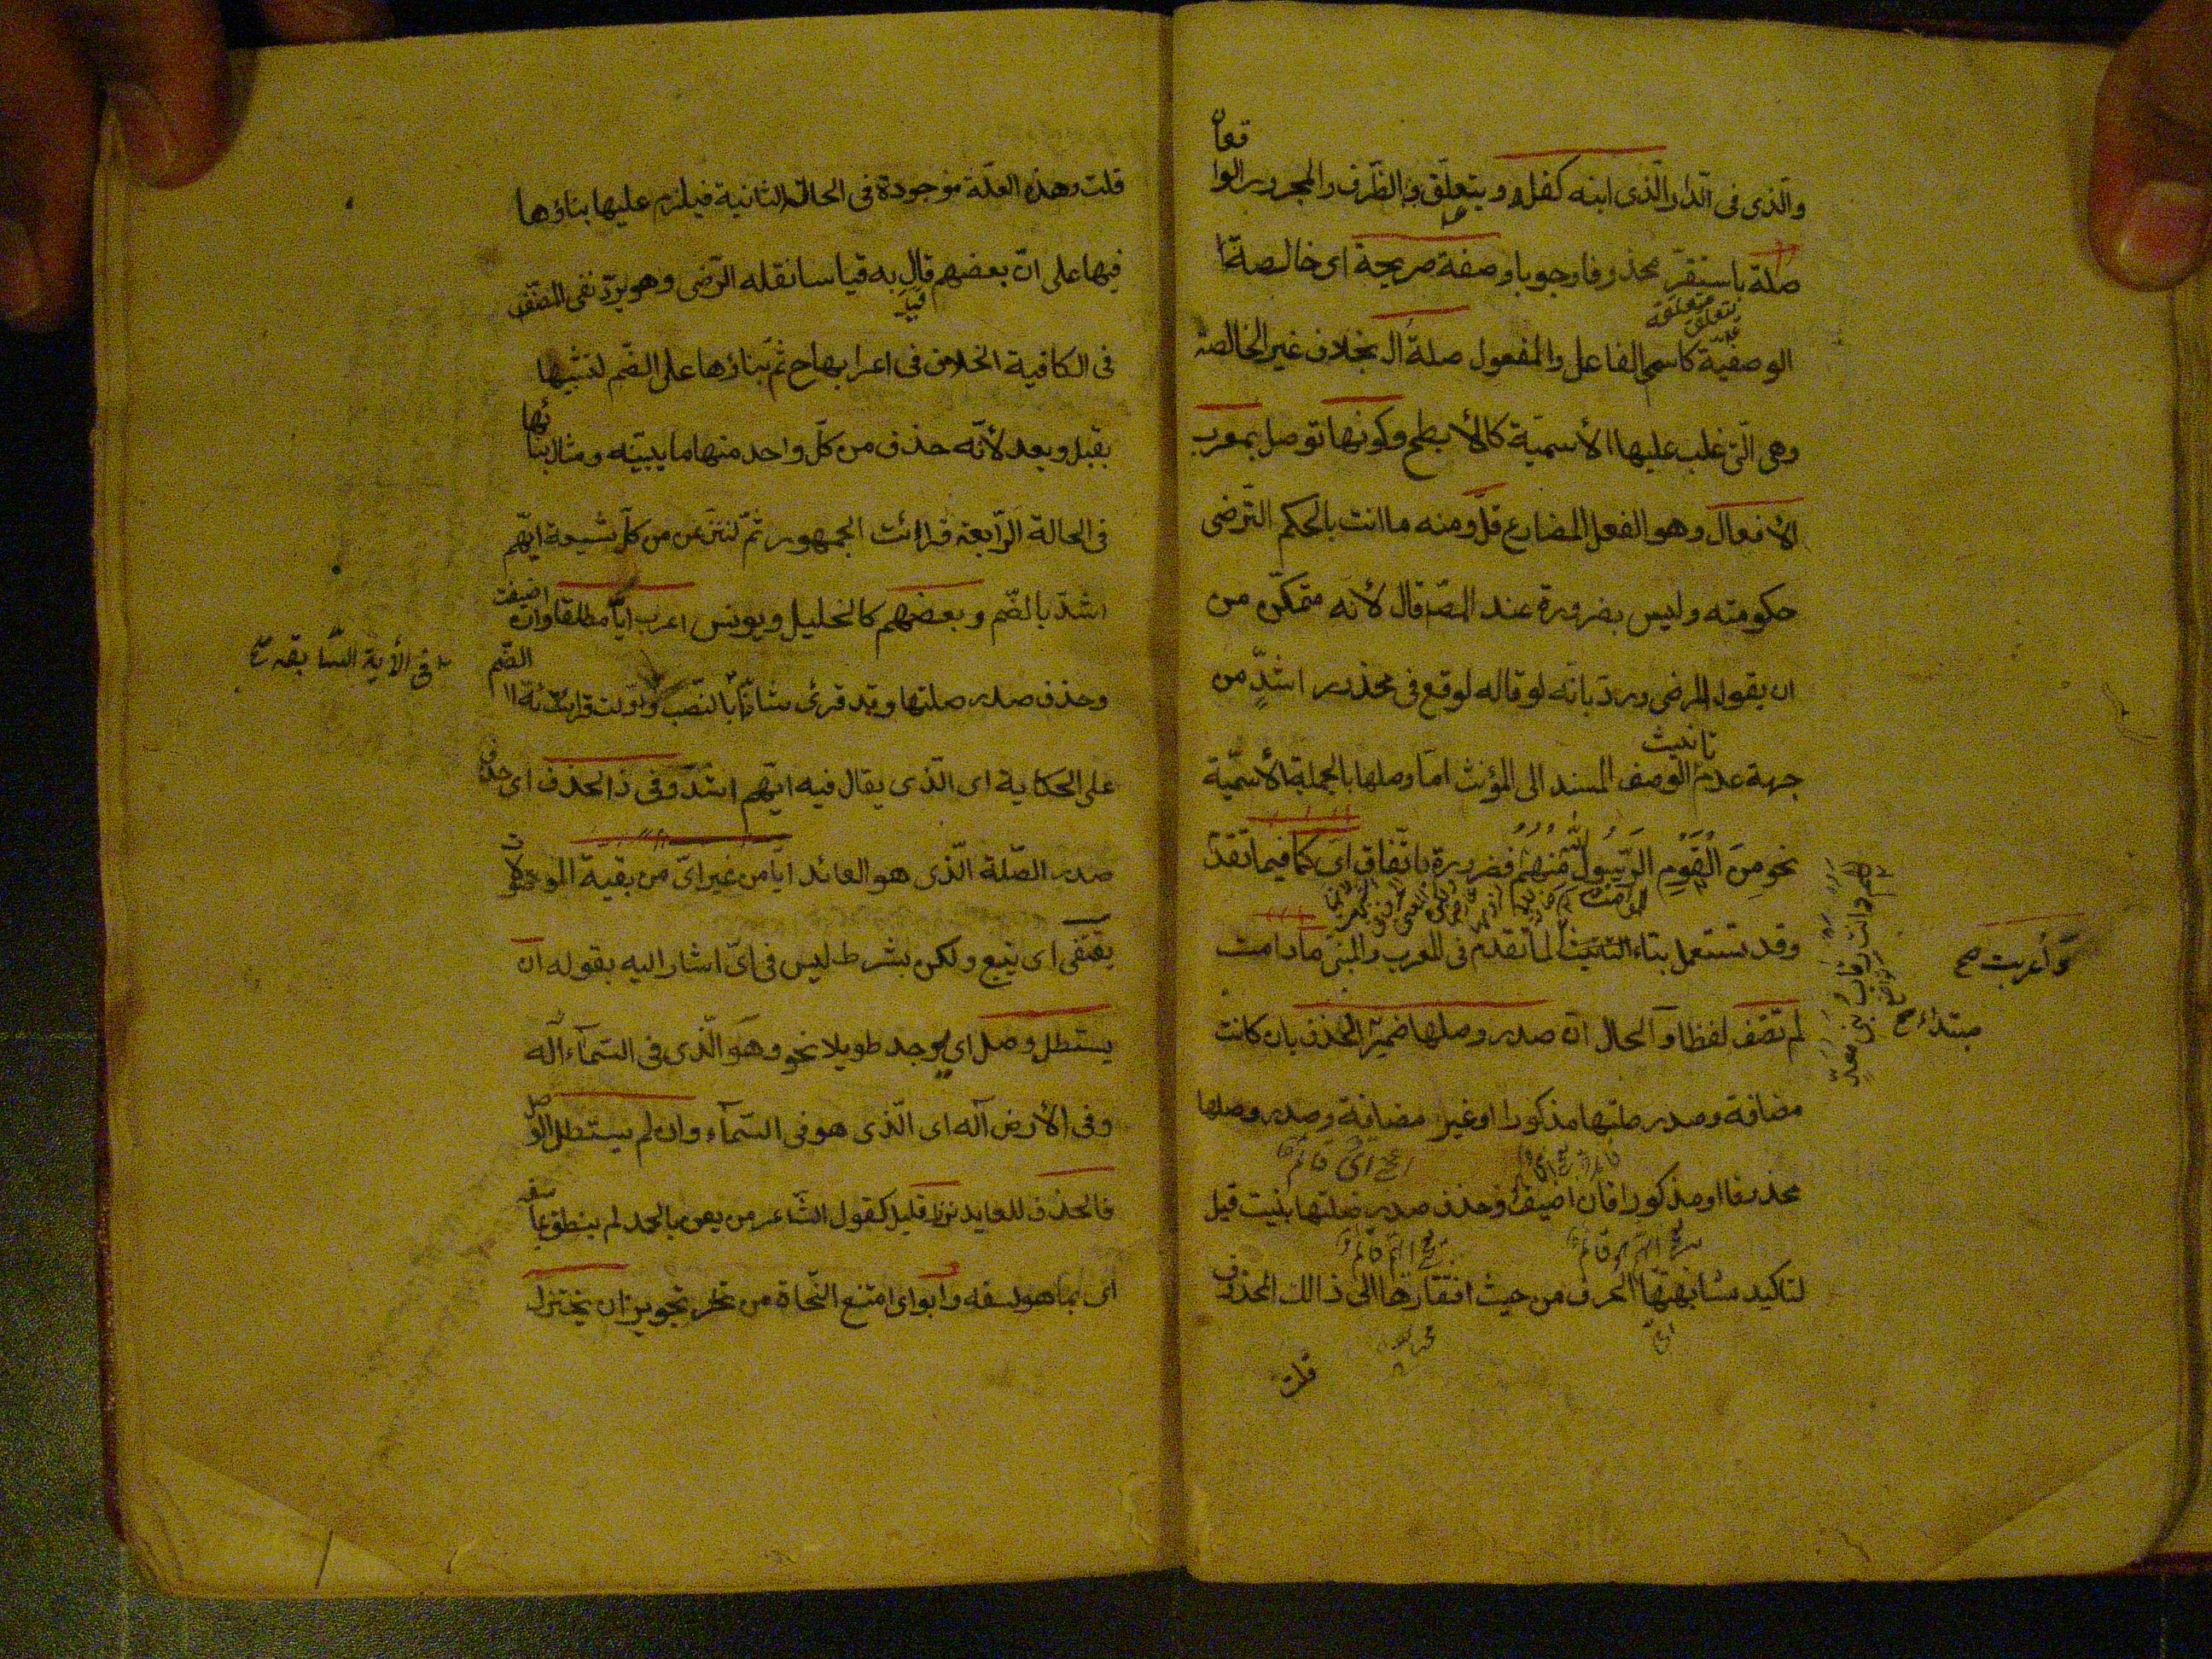 والّذى فى الدّار الّذى ابنه كفل و يتعلّق الظّرف والمجرور الوا
قعان
صلة باستقرّ محذوفا وجوبا وصفة صريحة اى خالصة
الوصفيّة كاسمى الفاعل والمفعول صلة ال بخلاف غير الخالصة
وهى الّتى غلب عليها الأسميّة كالأبطح وكونها توصل بمعرب
الأفعال وهو الفعل المضارع قلّ ومنه ما انت بالحكم التّرضى
حكومته وليس بضرورة عند المصّ قال لأنّه متمكّن من
ان يقول المرضى وردّ بانّه لو قاله لوقع فى محذور اشدّ من
جهة عدم تانيث الوصف المسند الى المؤنث امّا وصلها بالجملة الأسميّة
نحو من القوم الرّسول الله منهم فضرورة باتّفاق اىّ كما فيما تقدّ
وقد تستعمل بتاء التانيث لما تقدم فى المعرب والمبنى ما دامت
وأعربت صح
لم تضف لفظا والحال انّ صدر وصلها ضمير انحذف بان كانت
مبتداء صح
مضافة وصدر صلتها مذكورا او غير مضافة وصدر وصلها
محذوفا او مذكورا فان اضيفت وحذف صدر صلتها بنيت قيل
لتاكيد مشابهتها الحرف من حيث افتقارها الى ذالك المحذوف
قلت
قلت وهذه العلّة موجودة فى الحالة الثانية فيلزم عليها بناؤها
فيها على انّ بعضهم قال به قياسا نقله الرّضى وهو يردّ نفى المصنّف
فى الكافية الخلاف فى اعرابها ح ثمّ بناؤها على الضّم لتشبّهها
بقبل وبعد لأنّه حذف من كلّ واحد منهما ما يبيّنه ومثال بنائها
فى الحالة الرّابعة قرائت الجمهور ثمّ لننزعن من كلّ شيعة ايّهم
اشدّ بالضّم وبعضهم كالخليل ويونس اعرب ايّا مطلقا وان اضيفت
وحذف صدر صلتها وقد قرئ شاذّا بالنّصب واوّلت قرائة الضّم
فى الأية السّابقه صح
على الحكاية اى الّذى يقال فيه ايّهم اشدّ وفى ذا الحذف اى حذف
صدر الصّلة الّذى هو العائد ايّا من غير اىّ من بقية الموصولات
يقتفى اى يتبع ولكن بشرط ليس فى اىّ اشار اليه بقوله ان
يستطل وصل اى يوجد طويلا نحو وهو الّذى فى السّمآء اله
وفى الأرض اله اى الّذى هو فى السّمآء وان لم يستطل الوصل
فالحذف للعايد نزر قليل كقول الشّاعر من يعن بالحمد لم ينطق بما سفه
اى بما هو سفه وابوا اى امتنع النّحاة من تجويز ان يختزل